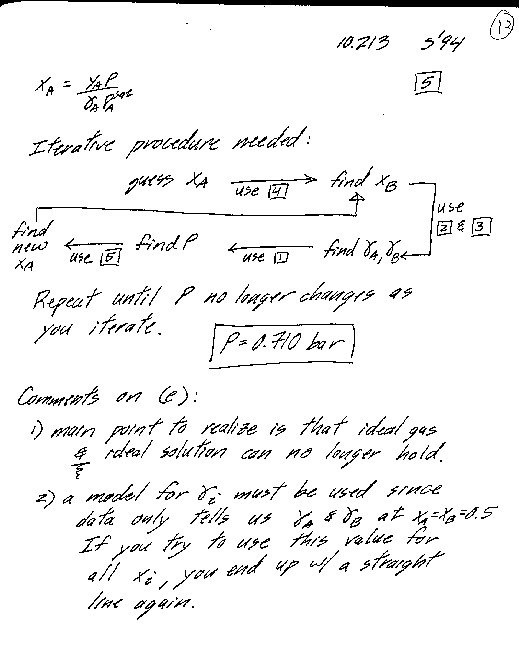 13
10.213 S'94
x_A = y_A P / γ_A P_A^sat [5]
Iterative procedure needed:
guess x_A → use [4] find x_B
use [2] & [3]
find new x_A ← use [5] find P ← use [1] find γ_A, γ_B
Repeat until P no longer changes as
you iterate.
P = 0.710 bar
Comments on (e):
1) main point to realize is that ideal gas
& ideal solution can no longer hold.
2) a model for γ_i must be used since
data only tells us γ_A & γ_B at x_A=x_B=0.5
If you try to use this value for
all x_i, you end up w/ a straight
line again.